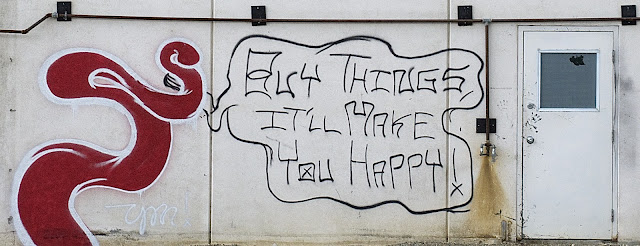 Buy Things,
It'll Make
You Happy!